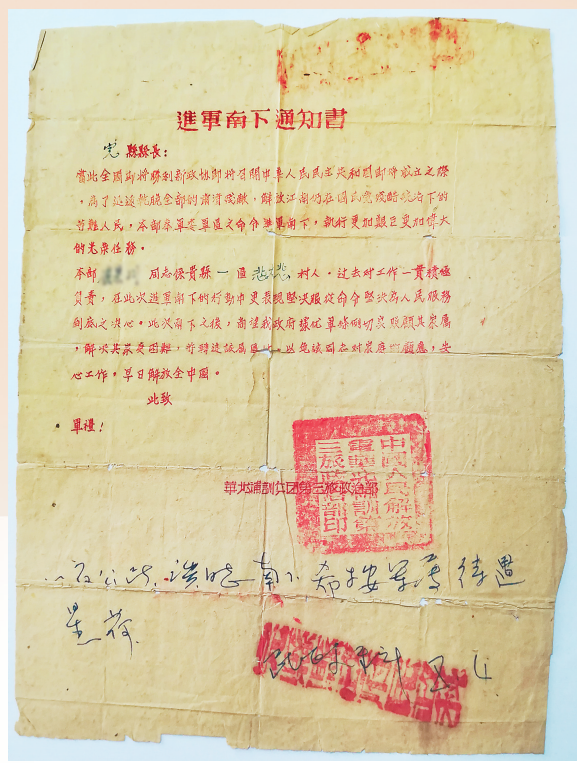 進軍南下通知書
縣縣長：
當此全國即將勝利新政協即將召開中華人民民主共和國即將成立之際
，為了迅速乾脆全部的肅清殘敵，解放江南仍在國民黨殘酷統治下的
苦難人民，本部奉軍委軍區之命令進軍南下，執行更加艱巨更加偉大
的光榮任務。
本部 同志係貴縣一區 村人。过去对工作一貫積極
負責，在此次進軍南下的行動中更表現堅決服從命令堅決為人民服務
到底之決心。此次南下之後，希望我政府按优軍條例切实照顧其家屬
，解决其家受困難，並轉送該屬區村，以免該同志对家庭的顧慮，安
心工作，早日解放全中國。
此致
軍禮！
華北補訓兵团第三旅政治部
中國人民解放
軍華北補訓第
三旅政治部印
南下 希按軍屬待遇
為荷